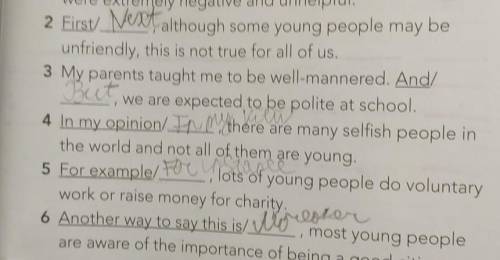 were extremely negative and unhelpful.
2 First/ Next, although some young people may be
unfriendly, this is not true for all of us.
3 My parents taught me to be well-mannered. And/
But, we are expected to be polite at school.
4 In my opinion/ In my view, there are many selfish people in
the world and not all of them are young.
5 For example/ For instance, lots of young people do voluntary
work or raise money for charity.
6 Another way to say this is/ Moreover, most young people
are aware of the importance of being a good